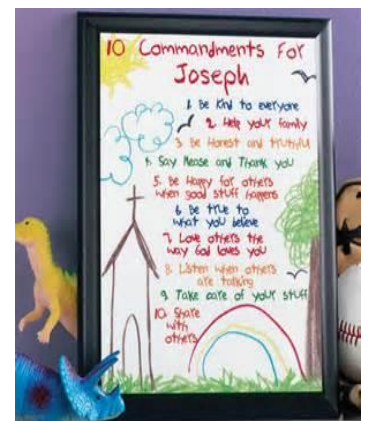 10 Commandments For
Joseph
1. Be Kind to everyone
2. Help your family
3. Be Honest and truthful
4. Say Please and Thank you
5. Be Happy for others
when good stuff happens
6. Be true to
what you believe
7. Love others the
way God loves you
8. Listen when others
are talking
9. Take care of your stuff
10. Share
with
others